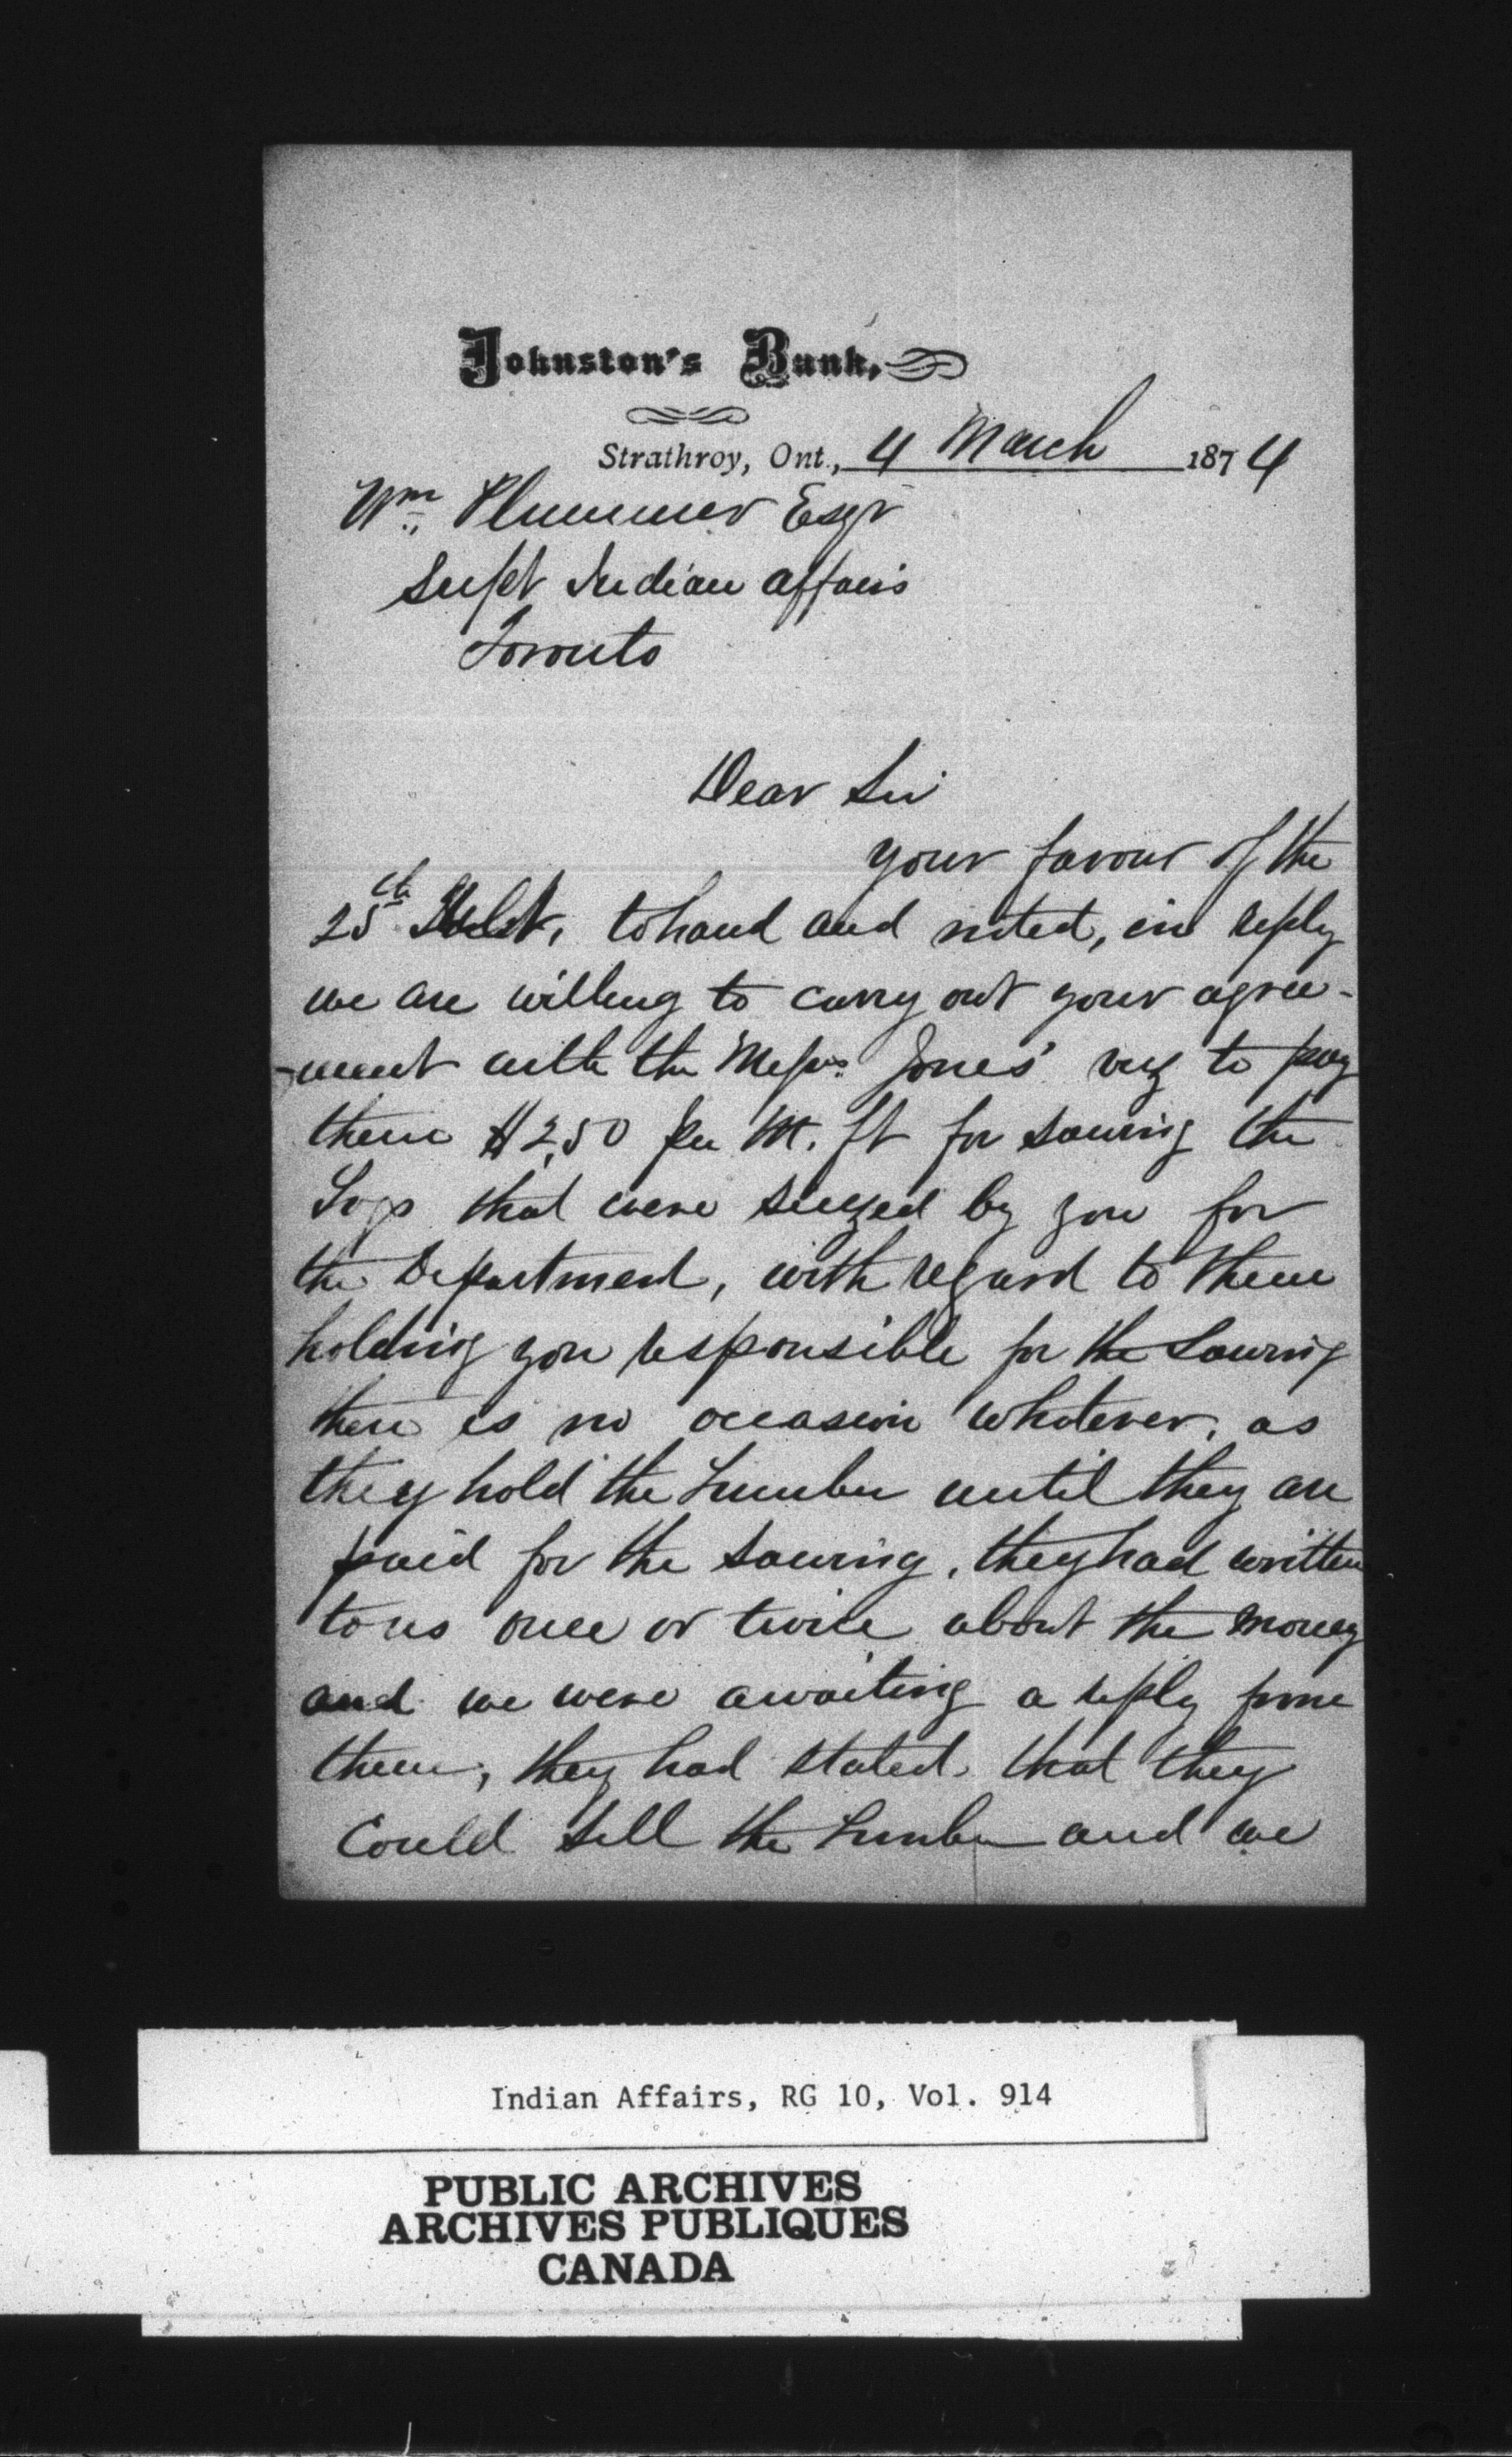 Johnston's Bank,
Strathroy, Ont., 4 March 1874
Wm. Plummer Esqr
Supt Indian affairs
Toronto
Dear Sir
your favour of the
25th to hand and noted, in reply
we are willing to carry out your agree-
-ment with the Messrs. Jones' viz to pay
them $2,50 per M. ft for sawing the
Logs that were siezed by you for
the Department, with regard to them
holding you responsible for the Sawing
there is no occasion whatever, as
they hold the Lumber until they are
paid for the sawing, they had written
to us once or twice about the money
and we were awaiting a reply from
them, they had stated that they
Could sell the Lumber and we
Indian Affairs, RG 10, Vol. 914
PUBLIC ARCHIVES
ARCHIVES PUBLIQUES
CANADA